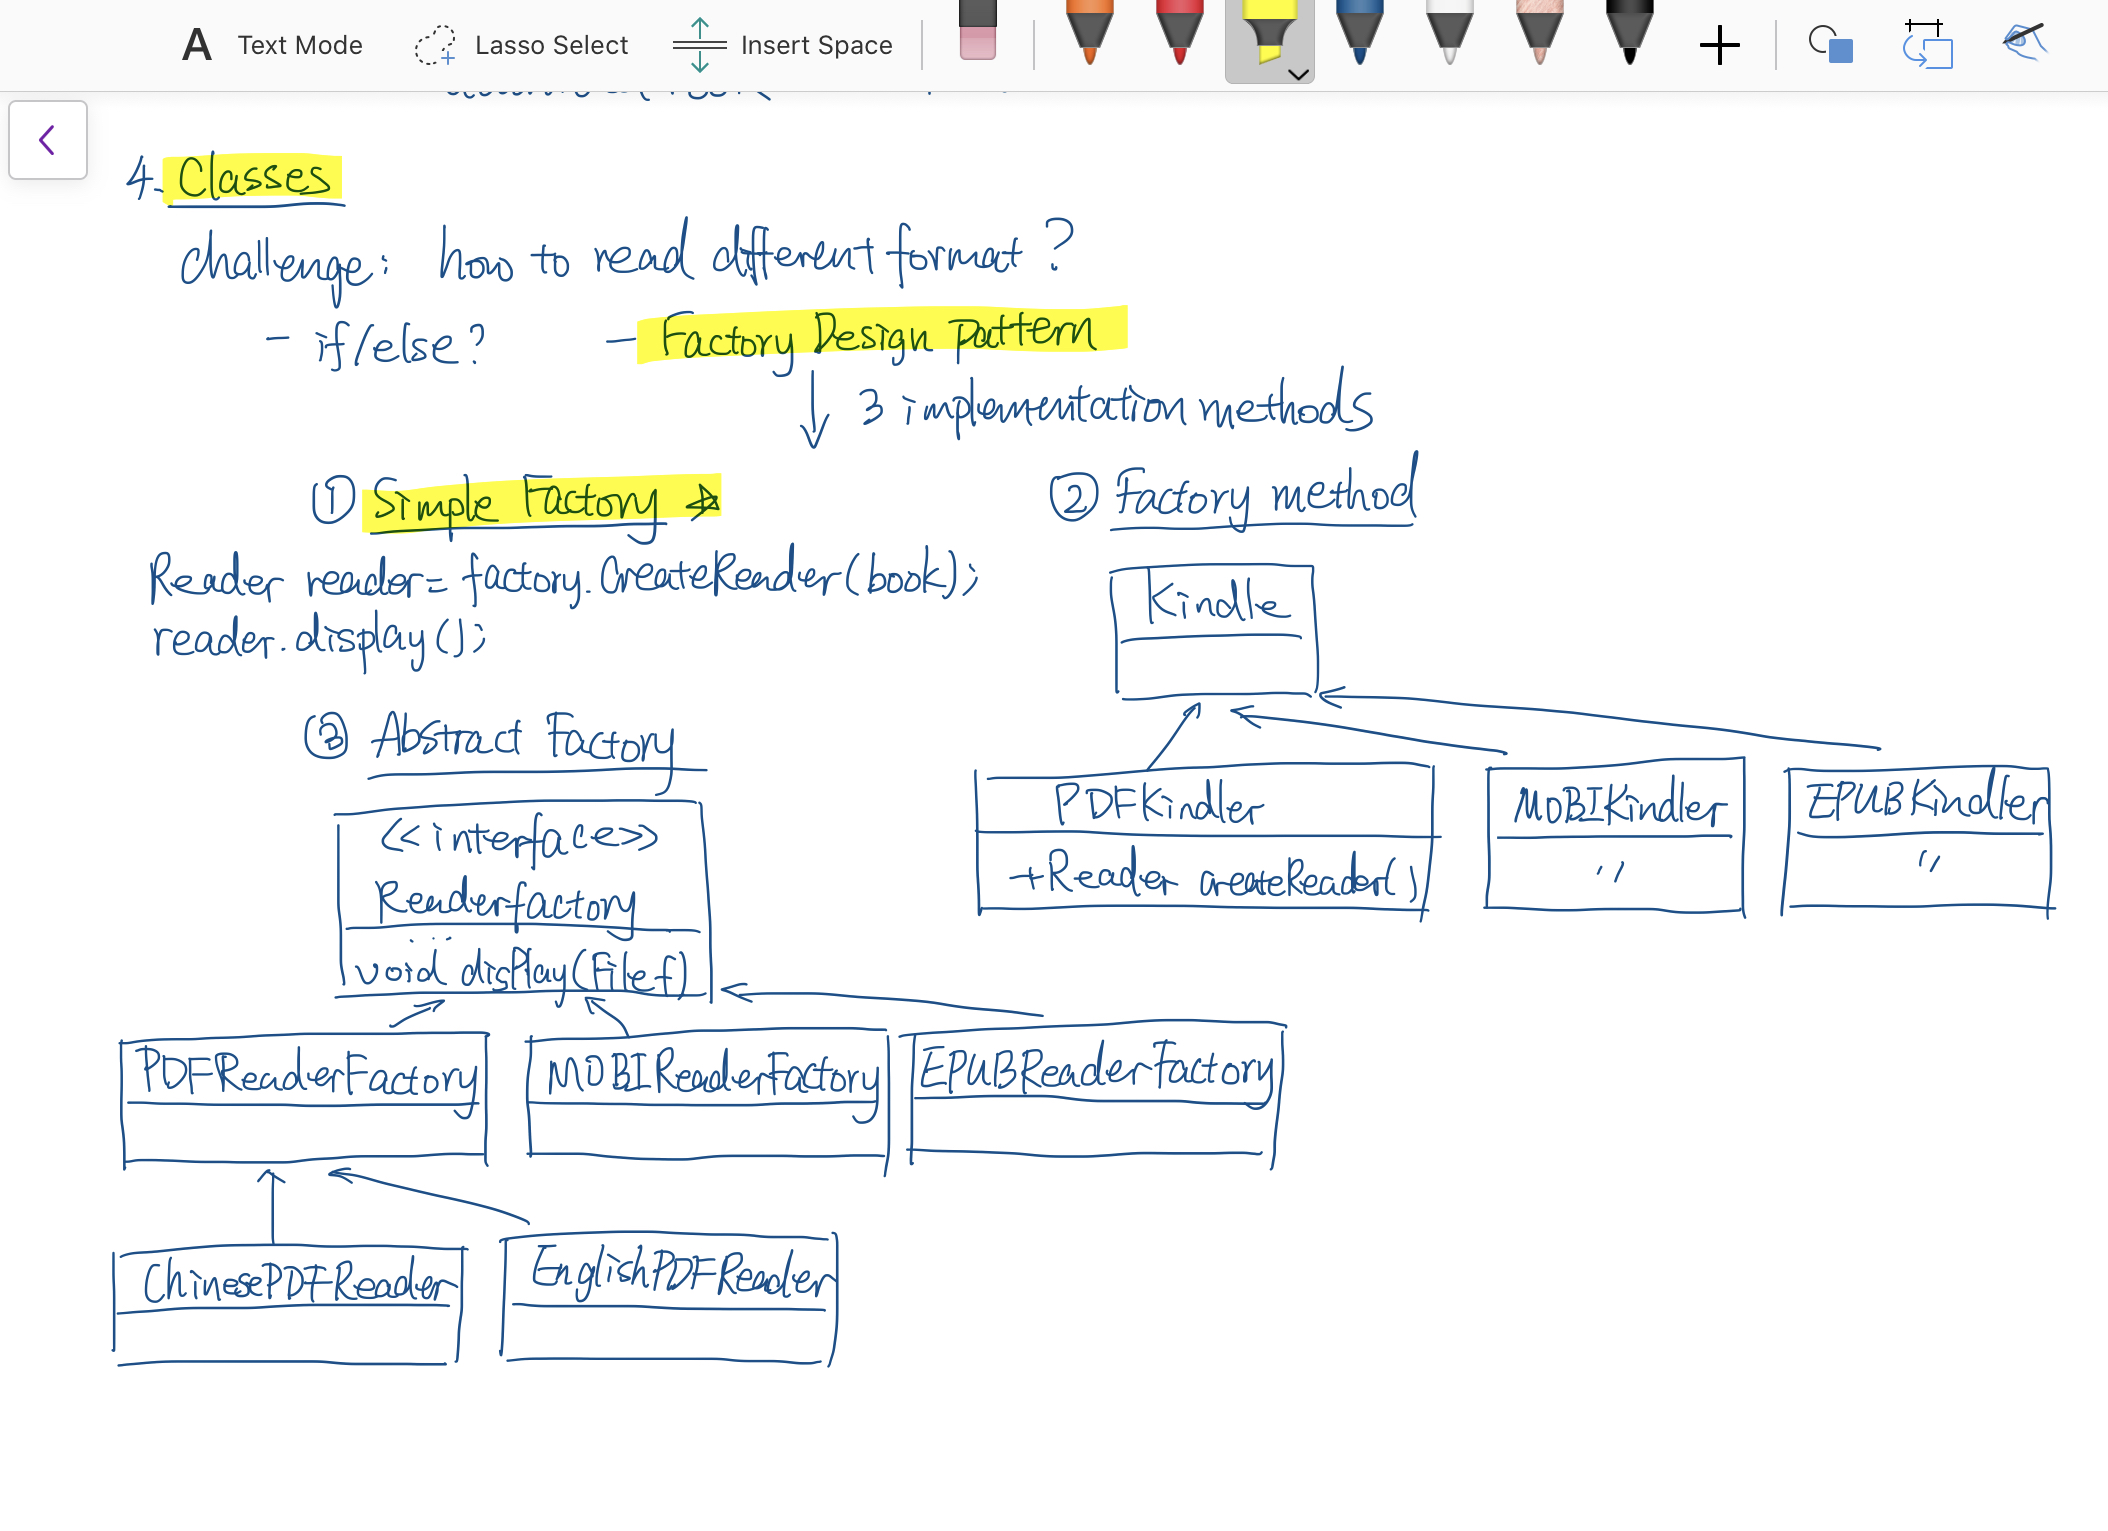 A Text Mode Lasso Select Insert Space
4. Classes
challenge: how to read different format?
- if/else? - Factory Design Pattern
3 implementation methods
① Simple Factory
② Factory method
Reader reader = factory.createReader(book);
reader.display();
Kindle
PDFKindler
+Reader createReader()
MOBIKindler
"
EPUBKindler
"
③ Abstract Factory
<<interface>>
Readerfactory
void display(File f)
PDFReaderFactory MOBIReaderFactory EPUBReaderFactory
ChinesePDFReader EnglishPDFReader